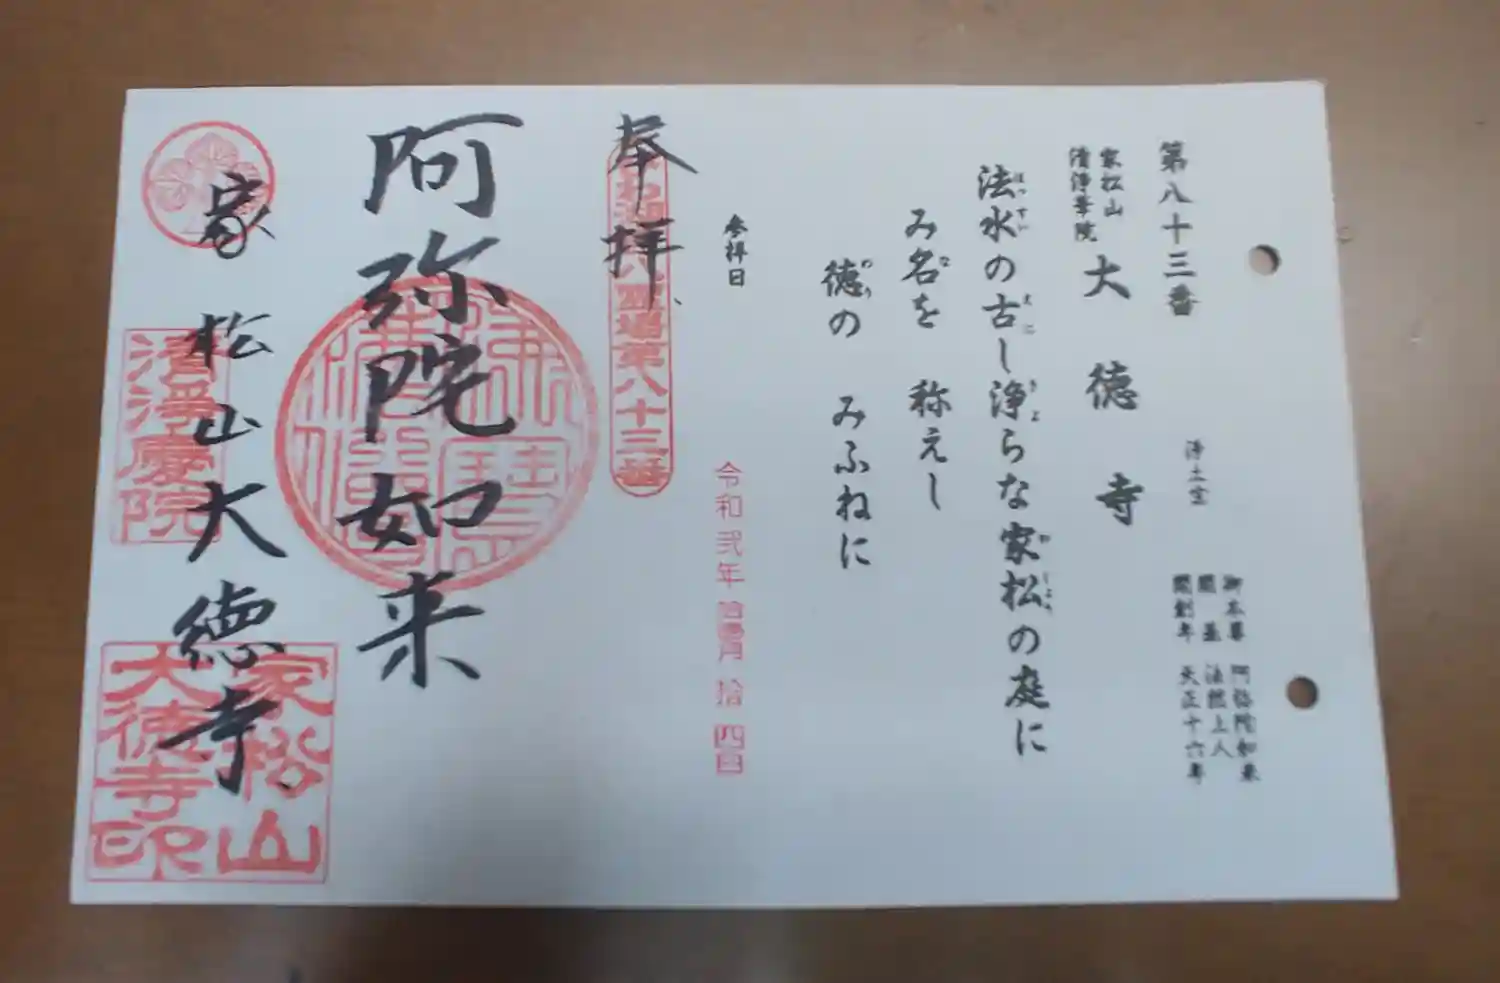 第八十三番
浄土宗
家松山
清浄華院
大徳寺
御本尊 阿弥陀如来
開基 法然上人
開創年 天正十六年
法水の古し浄らな家松の庭に
ほっすい
み名を 称えし
な
徳の みふねに
参拝日
令和弐年拾壱月拾四日
奉拝
第八十三番
阿弥陀如来
家松山大徳寺
清浄慶院
家松山
大徳寺印